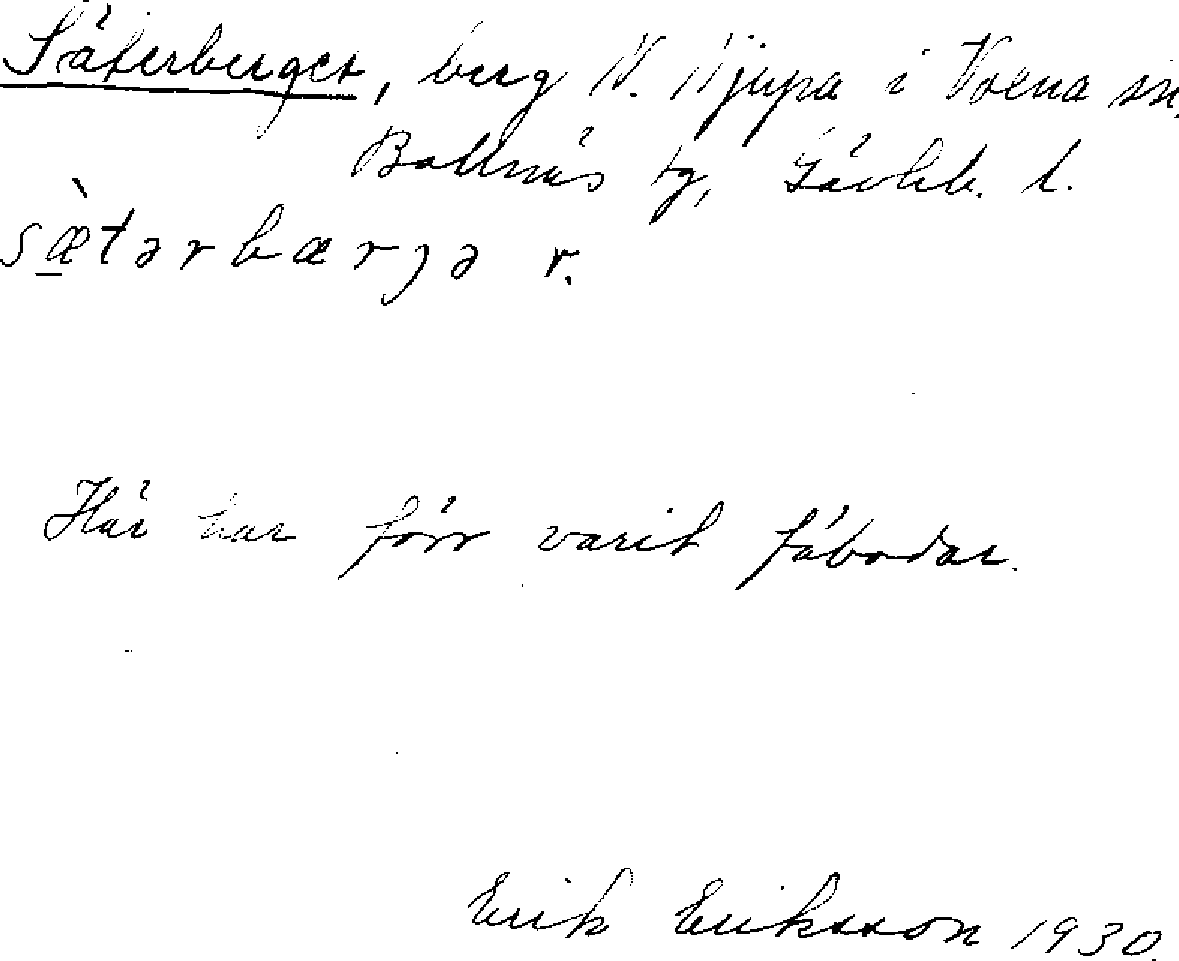 Säterberget, berg N. Njupa i Voxna sn.
Bollnäs tg, Gävleb. l.
sæ̀tərbærjə r.
Här har förr varit fäbodar.
Erik Eriksson 1930.